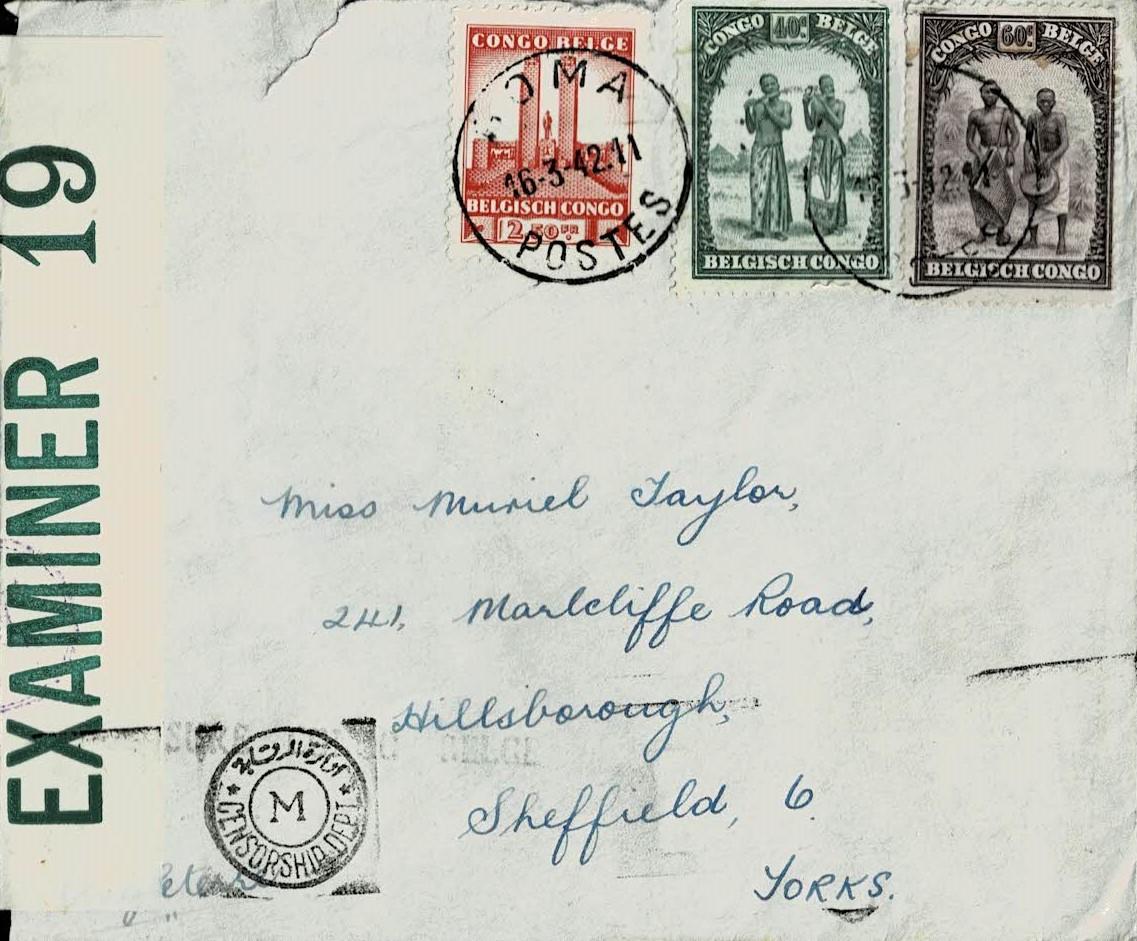 EXAMINER 19
CONGO BELGE
BELGISCH CONGO
2.50 FR
OMA
16-3-42.11
POSTES
CONGO 40c BELGE
BELGISCH CONGO
CONGO 60c BELGE
BELGISCH CONGO
Miss Muriel Taylor,
241, Marlcliffe Road,
Hillsborough,
Sheffield, 6.
YORKS.
BELGE
M
CENSORSHIP.DEPT.